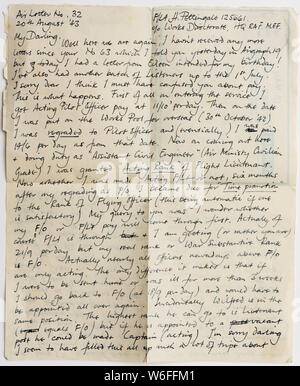 Air Letter No. 32
20th August '43
F/Lt H. Pettingale 125061
c/o Works Directorate, HQ RAF MEF
My Darling,
Well here we are again. I haven't received any more
letters since your No 63 which I told you yesterday in Airgraph 49
but today I had a letter from Eileen intended for my birthday.
I've also had another batch of Listeners up to the 1st July.
I'm sorry dear I think I must have confused you about pay.
This is what happens. First of all on entering the service I
got Acting Pilot Officer pay at 11/10 per day. Then on the date
I was put on the Works Prof for overseas (30th October '42)
I was regraded to Pilot Officer and (eventually) I paid
14/6 per day as from that date. Now on coming out here
& doing duty as "Assistant Civil Engineer" (Air Ministry Civilian
Grade) I was granted acting rank Flight Lieutenant.
Now whether I not, six months
after my regrading to P/O I became due for Time promotion
to the Rank of Flying Officer (this being automatic if one
is satisfactory) My query to you was I wonder whether
my F/O or F/Lt pay will come through first. Actually of
course F/Lt is through & I am getting (or rather you are)
21/9 per day but my real rank or War Substantive Rank
is F/O. Actually nearly all officers nowadays above F/O
are only acting. The only difference it makes is that if
I were to be sent home or be ill for more than 3 weeks
I should go back to F/O (at per day) and would have to
be appointed all over again. Incidentally Wilfred is in the
same position. The highest rank he can go to is Lieutenant
(equals F/O) but if he is appointed to a vacant
post he could be made Captain (acting). I'm sorry darling
I seem to have filled this all up with a lot of tripe about
alamy
Image ID: W6FFM1
www.alamy.com